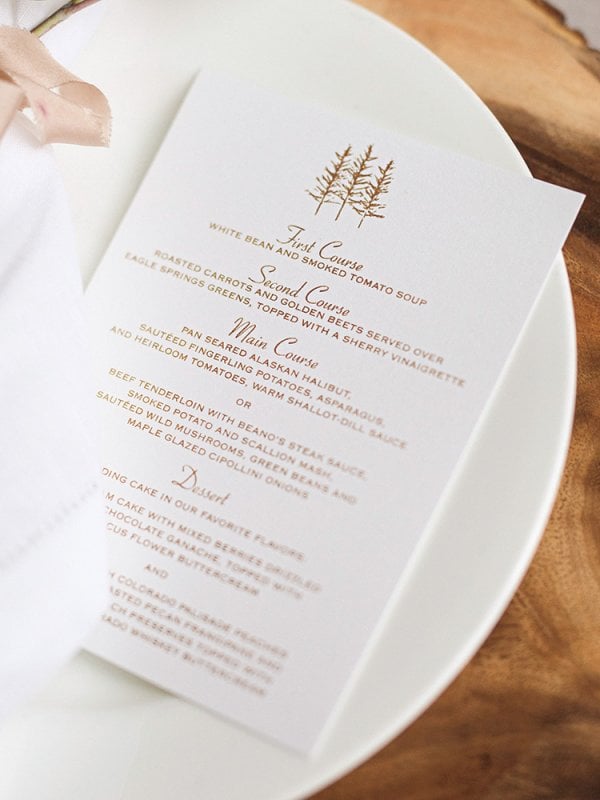 First Course
WHITE BEAN AND SMOKED TOMATO SOUP
Second Course
ROASTED CARROTS AND GOLDEN BEETS SERVED OVER
EAGLE SPRINGS GREENS, TOPPED WITH A SHERRY VINAIGRETTE
Main Course
PAN SEARED ALASKAN HALIBUT,
SAUTÉED FINGERLING POTATOES, ASPARAGUS,
AND HEIRLOOM TOMATOES, WARM SHALLOT-DILL SAUCE
OR
BEEF TENDERLOIN WITH BEANO'S STEAK SAUCE,
SMOKED POTATO AND SCALLION MASH,
SAUTÉED WILD MUSHROOMS, GREEN BEANS AND
MAPLE GLAZED CIPOLLINI ONIONS
Dessert
DING CAKE IN OUR FAVORITE FLAVORS,
M CAKE WITH MIXED BERRIES DRIZZLED
CHOCOLATE GANACHE, TOPPED WITH
CUS FLOWER BUTTERCREAM
AND
H COLORADO PALISADE PEACHES
ASTED PECAN FRANGIPANE AND
CH PRESERVES TOPPED WITH
ADO WHISKEY BUTTERCREAM